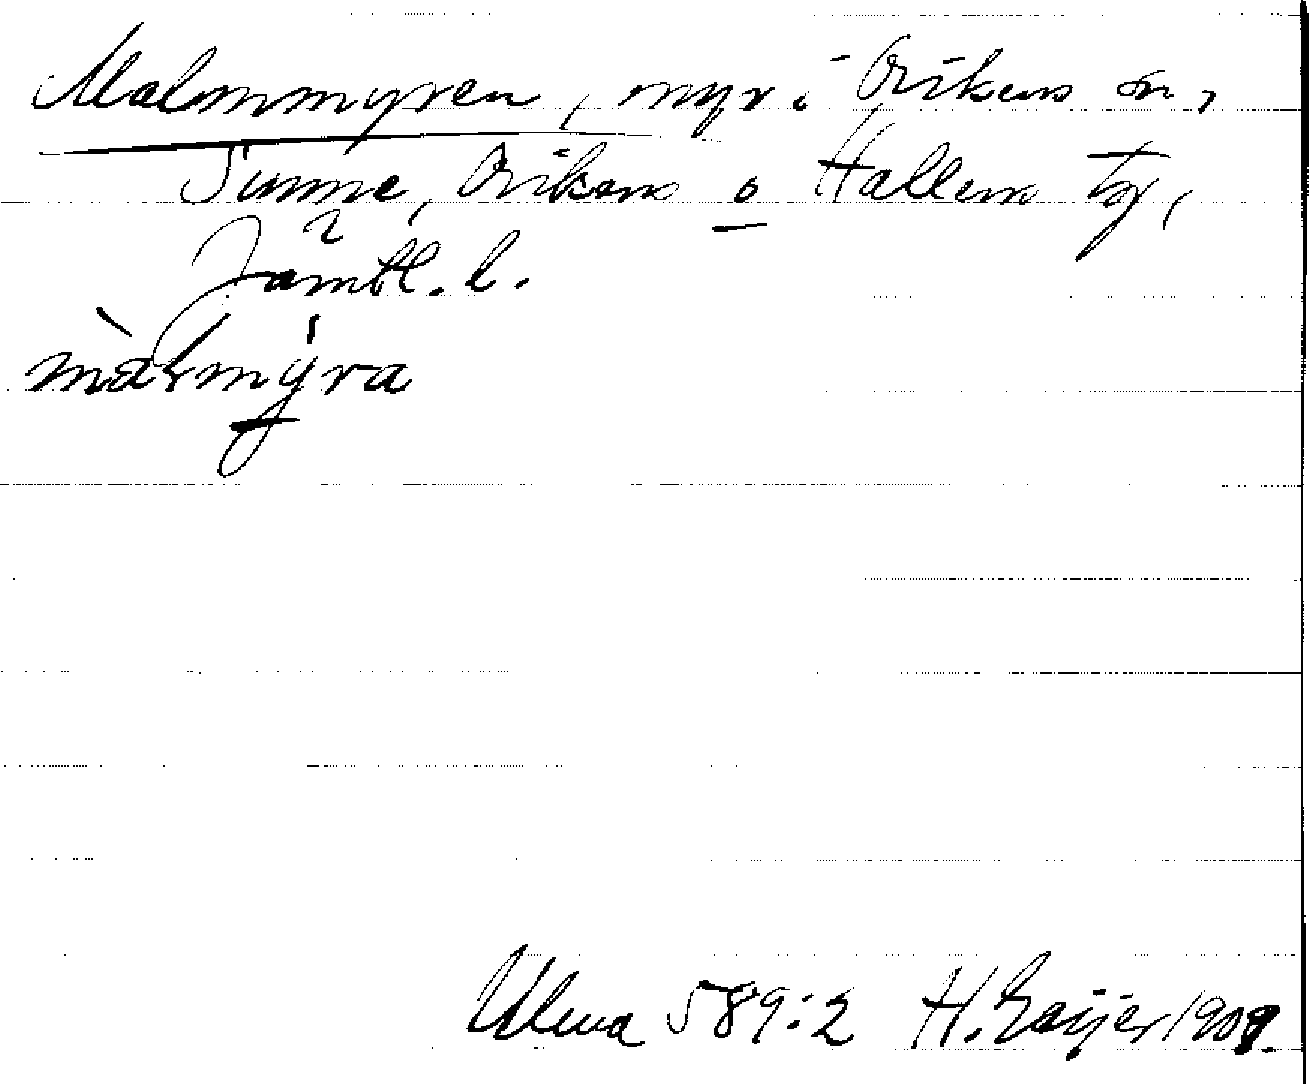 Malmmyren, myr i Ovikens sn,
Sunne, Ovikens o Hallens tg,
Jämtl. l.
màɫmýra
Ulma 589:2 H. Geijer 1909.